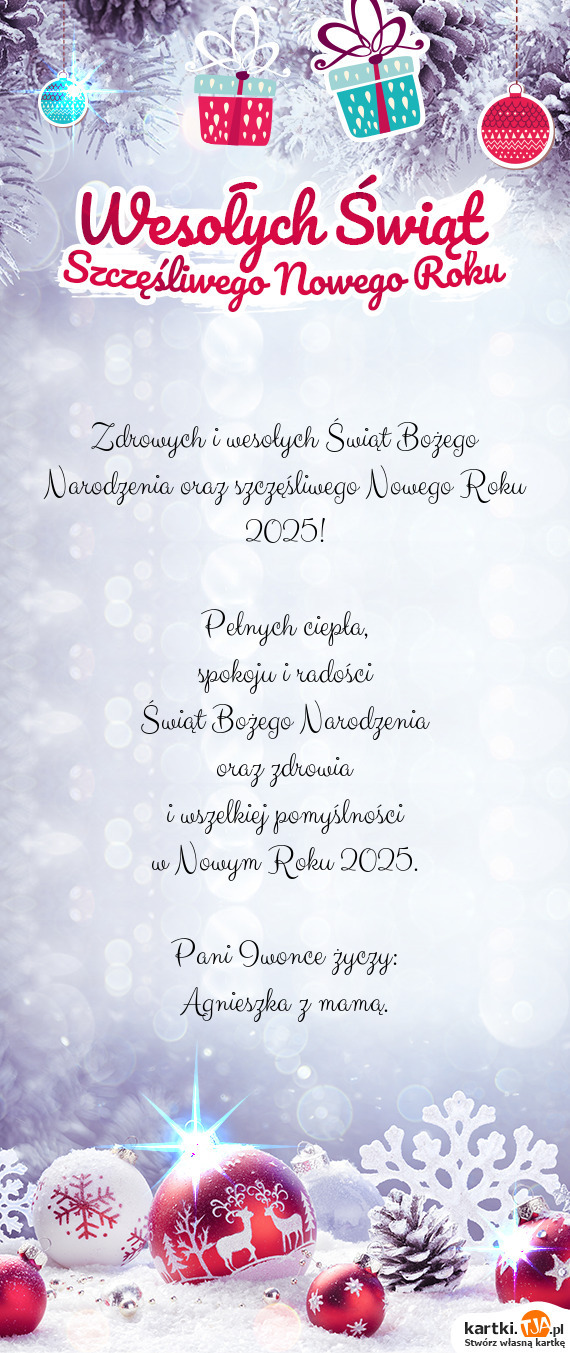 Wesołych Świąt
Szczęśliwego Nowego Roku
Zdrowych i wesołych Świąt Bożego
Narodzenia oraz szczęśliwego Nowego Roku
2025!
Pełnych ciepła,
spokoju i radości
Świąt Bożego Narodzenia
oraz zdrowia
i wszelkiej pomyślności
w Nowym Roku 2025.
Pani Iwonce życzy:
Agnieszka z mamą.
kartki.TJA.pl
Stwórz własną kartkę